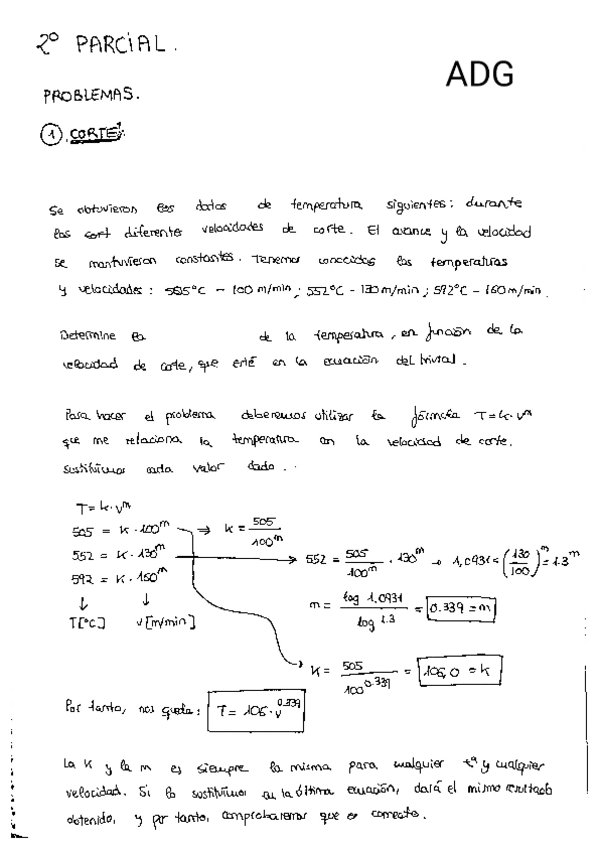 2º PARCIAL.
ADG
PROBLEMAS.
1. CORTE:
Se obtuvieron los datos de temperatura siguientes: durante
las cort diferentes velocidades de corte. El avance y la velocidad
se mantuvieron constantes. Tenemos conocidos las temperaturas
y velocidades: 505°C - 100 m/min; 552°C - 130 m/min; 592°C - 160 m/min.
Determine la de la temperatura, en función de la
velocidad de corte, que esté en la ecuación del trivial.
Para hacer el problema deberemos utilizar la fórmula T=k·vᵐ
que me relaciona la temperatura con la velocidad de corte.
Sustituimos cada valor dado..
T = k·vᵐ
505 = K·100ᵐ ⇒ k = 505/100ᵐ
552 = K·130ᵐ → 552 = 505/100ᵐ · 130ᵐ → 1,0931 = (130/100)ᵐ = 1.3ᵐ
592 = K·160ᵐ
↓ ↓
T[°C] v[m/min]
m = log 1,0931 / log 1.3 = 0.339 = m
K = 505/100^0.339 = 106,0 = k
Por tanto, nos queda: T = 106·v^0.339
La K y la m es siempre la misma para cualquier tª y cualquier
velocidad. Si lo sustituimos en la última ecuación, dará el mismo resultado
obtenido, y por tanto, comprobaremos que es correcto.